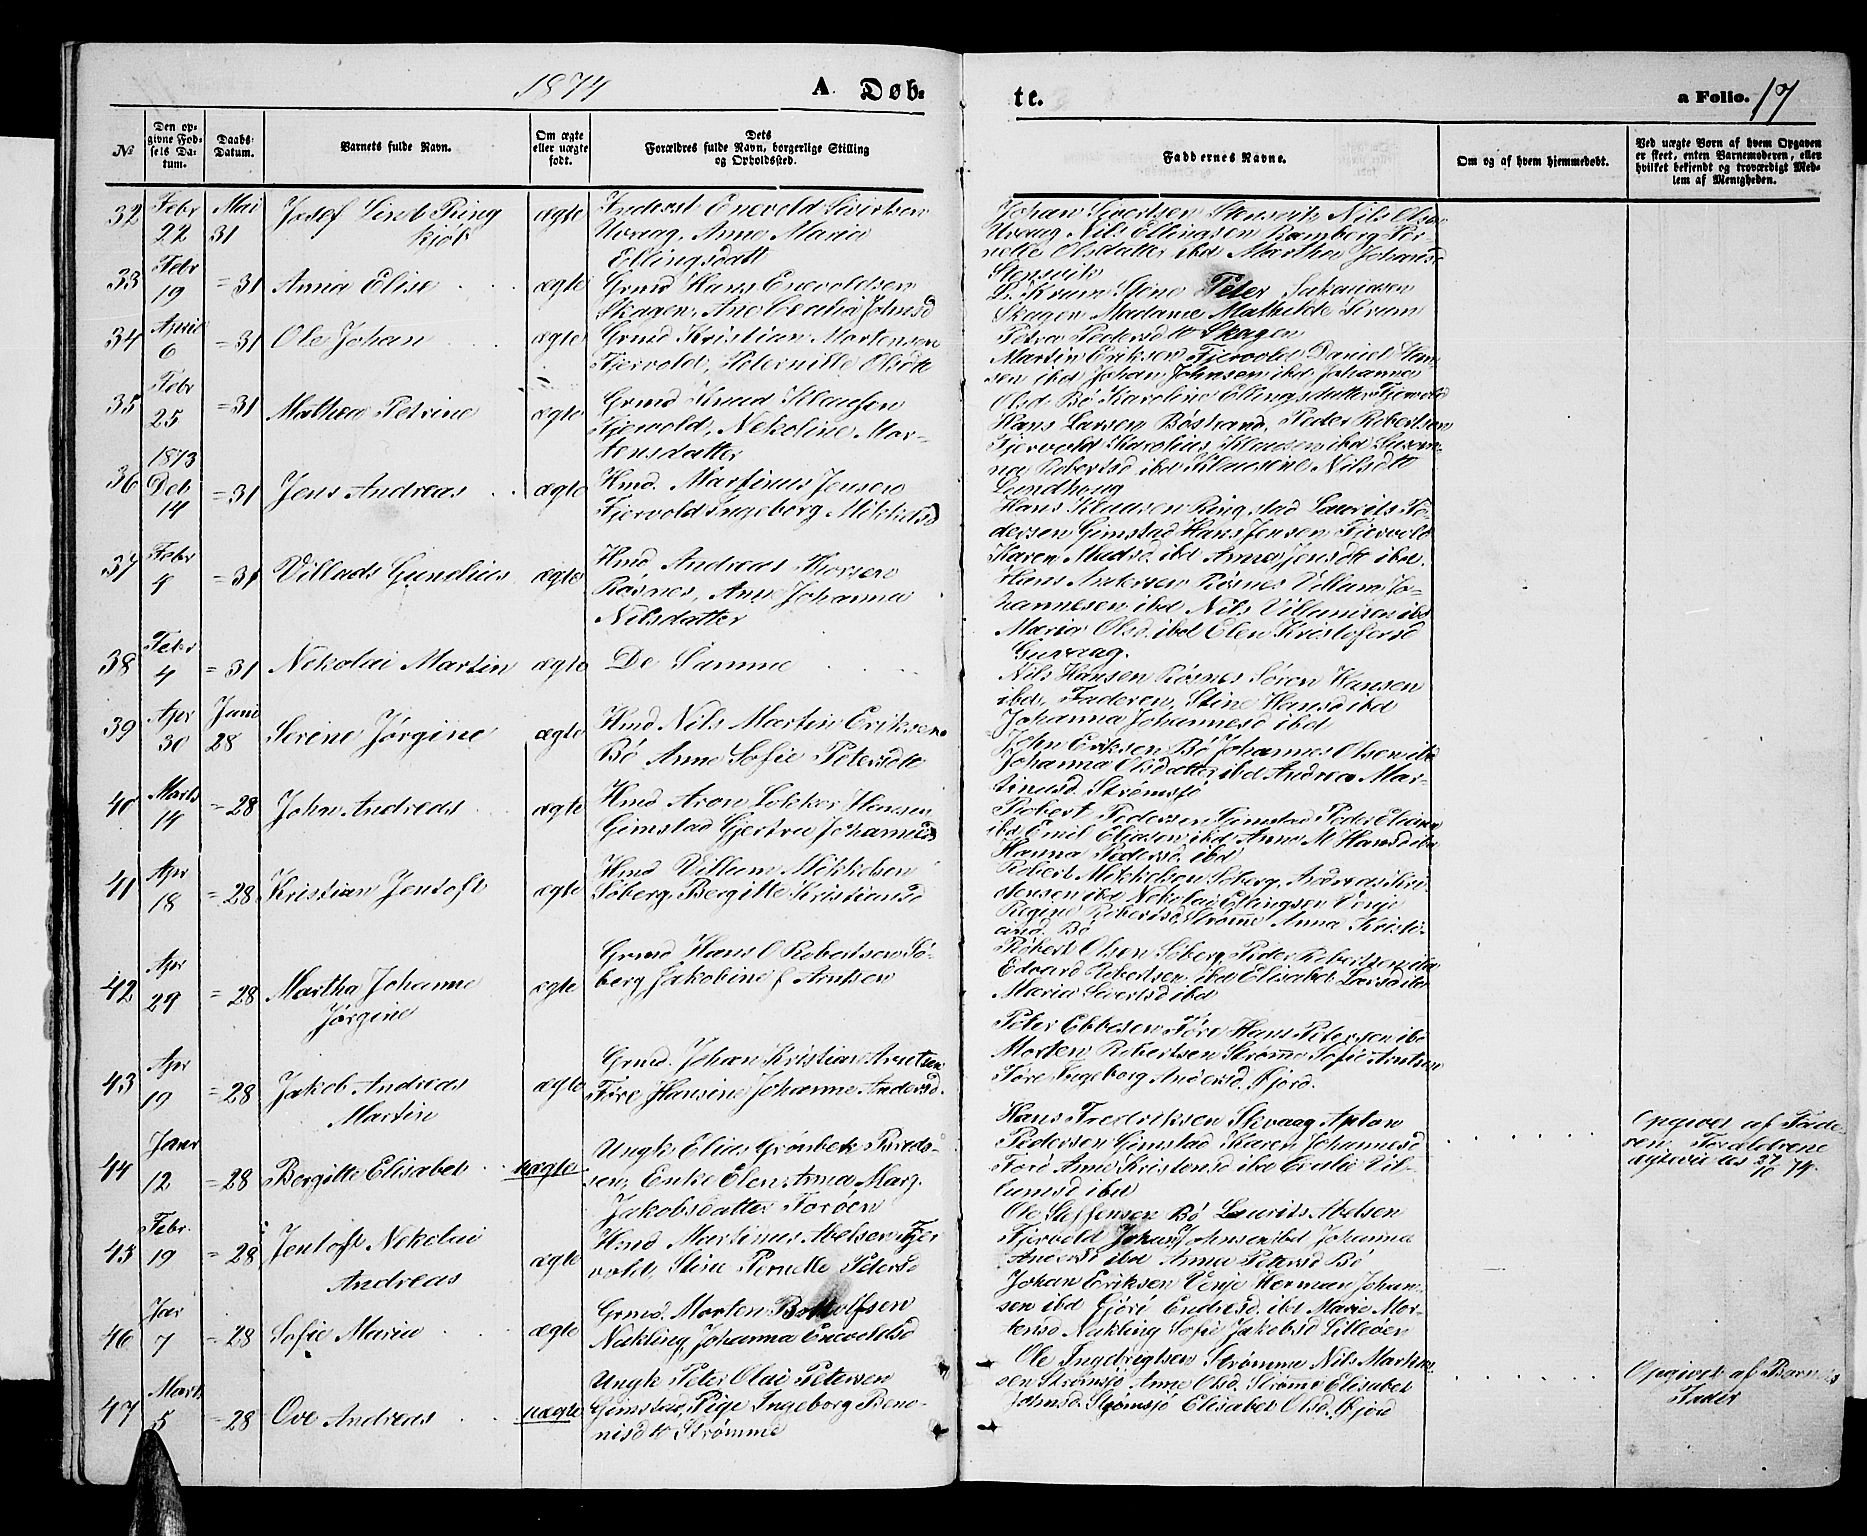 1874 A Døb-
te. a Folio. 17
No
Den op-
givne Fød-
sels Da-
tum.
Daabs-
Datum.
Barnets fulde Navn.
Om ægte
eller uægte
født.
Dets
Forældres fulde Navn, borgerlige Stilling
og Opholdssted.
Faddernes Navne.
Om og af hvem hjemmedøbt.
Ved uægte Børn af hvem Opgaven
er skeet, enten Barnemoderen, eller
hvilket bekjendt og troværdigt Med-
lem af Menigheden.
32 Febr 22 Mai 31 Josef Lind Ring
kjøb
ægte
Inderst Enevold Sivertsen
Uvaag, Anne Maria
Ellingsdatt
Johan Sivertsen Stensvik Nils Olsen
Uvaag Nils Ellingsen Ramberg Per-
nelle Olsdatter ibd Martha Johansd
Stensvik
33 Febr 19 = 31 Anna Elise
ægte
Grmd Hans Enevoldsen
Skagen, Ane Cecilia Johnsd
Stene Peter Zakariasen
Skagen Madame Mathilde
Petra Pedersdtr Skagen
34 April 6 = 31 Ole Johan
ægte
Grmd Kristian Mortensen
Fjervold, Peternille Olsdtr
Martin Eriksen Fjervold Daniel Han-
sen ibd Johan Johnsen ibd Johanna
Olsd Bø Karoline Ellingsdatter Fjervold
35 Febr 25 = 31 Mathea Petrine
ægte
Grmd Knud Klausen
Fjervold, Nekoline Mor-
tensdatter
Hans Larsen Bøstrand, Peder Robertsen
Fjervold Karolius Klausen ibd Susan-
na Robertsd ibd Klausine Nilsdtr
Lundhoug
36 1873 Deb 14 = 31 Jens Andreas
ægte
Hmd. Martinus Jensen
Fjervold Ingeborg Mikkelsd
Hans Klausen Ringstad Laurits Pe-
dersen Gimstad Hans Jensen Fjervold
Karen Madsd ibd Anna Jensdtr ibd.
37 Febr 4 = 31 Villads Gunelius
ægte
Hmd Andreas Thorsen
Røsnes, Ane Johanna
Nilsdatter
Hans Andersen Røsnes Villum Jo-
hannesen ibd Nils Villumsen ibd
Maria Olsd. ibd Elen Kristofersd
Guvaag.
38 Febr 4 = 31 Nekolai Martin
ægte
De Samme
Nils Hansen Røsnes Søren Hansen
ibd, Faderen, Stine Hansd ibd
Johanna Johannesd ibd
39 Apr 30 Juni 28 Serine Jørgine
ægte
Hmd Nils Martin Eriksen
Bø Anne Sofie Petersdtr
John Eriksen Bø Johannes Olsen ibd
Johanna Olsdatter ibd Andrea Mar-
tinusd. Strømsjø
40 Marts 14 = 28 John Andreas
ægte
Hmd Aron Hansen
Gimstad Gjertru Johannesd
Robert Pedersen Gimstad Peder Eliasen
ibd Emil Eliasen ibd Anne M Hansd ibd
Hanna Pedersd. ibd
41 Apr 18 = 28 Kristian Jentoft
ægte
Hmd Villum Mikkelsen
Søberg, Bergitte Kristiansd
Robert Mikkelsen Søberg, Andreas Kri-
stensen ibd Nekolai Ellingsen Vinje
Regine Robertsd Strømme Anna Kristi-
ansd. Bø
42 Apr 29 = 28 Martha Johanne
Jørgine
ægte
Grmd Hans O Robertsen Sø-
berg Jakobine f Arntsen
Robert Olsen Søberg, Peder Robertsen ibd
Edvard Robertsen ibd Elisabet Larsd ibd
Maria Sivertsd ibd
43 Apr 19 = 28 Jakob Andreas
Martin
ægte
Grmd. Johan Kristian Arntsen
Føre Hansine Johanne Andersd.
Peter Ebbesen Føre Hans Petersen ibd
Morten Robertsen Strømme Sofie Arntsen
Føre Ingeborg Andersd. Fjord.
44 Janr 12 = 28 Bergitte Elisabet
uægte
Ungk Elias Grønbek
sen, Enke Elen Anna Marg.
Jakobsdatter Forøen
Hans Fredriksen Skvaag Anton
Pedersen Gimstad Karen Johannesd
Ford Anne Kristensd ibd Cecilie Vil-
lumsd ibd
Opgivet af Fade-
ren. Forældrene
ægteviedes 27/10 74.
45 Febr. 19 = 28 Jentoft Nekolai
Andreas
ægte
Hmd Martinus Abelsen Fjer
vold, Stine Pernelle Petersd
Ole Steffensen Bø Laurits Abelsen
Fjervold Johan Johnsen ibd Johanna
Andersd ibd Anna Petersd Bø
46 Jar 7 = 28 Sofie Maria
ægte
Grmd. Morten Bottolfsen
Nakling, Johanna Enevoldsd
Johan Eriksen Vinje Herman Johan-
sen ibd Endresd. ibd Marie Mor-
tensd Nakling Sofie Jakobsd Lilleøen
47 Mart. 5 = 28 Ove Andreas
uægte
Ungk Peter Olai Petersen
Gimstad, Pige Ingeborg Beno-
nisdtr Strømme
Ole Ingebrigtsen Strømme Nils Martin-
sen Strømsjø Anne Olsd. Strømme Elisabet
Johnsd. Strømsjø Elisabet Olsd. Fjord
Opgivet af Barnets
Fader